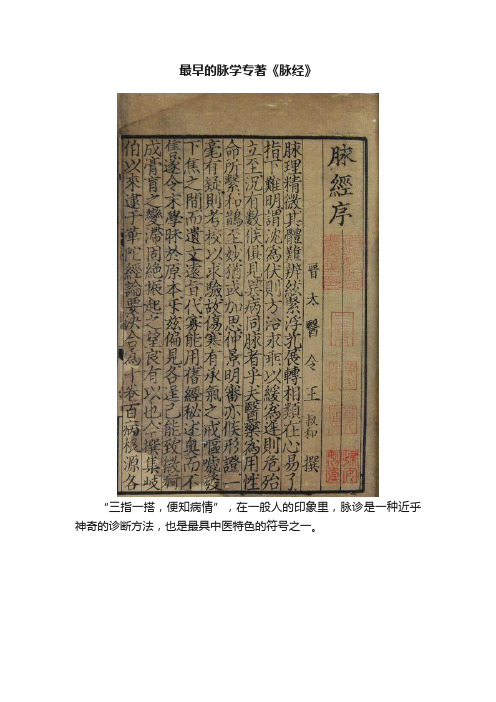 最早的脉学专著《脉经》
脉經序
晉太醫令王叔和撰
脉理精微其體難辨弦緊浮芤展轉相類在心易了
指下難明謂沈為伏則方治永乖以緩為遲則危殆
立至況有數候俱見異病同脉者乎夫醫藥為用性
命所繫和鵲至妙猶或加思仲景明審亦候形證一
毫有疑則考校以求驗故傷寒有承氣之戒嘔噦發
下焦之間而遺文遠旨代寡能用舊經秘述奧而不
售遂令末學昧於原本斥茲偏見各逞己能致微痾
成膏肓之變滯固絕振起之望良有以也今撰集岐
伯以來逮于華佗經論要決合為十卷百病根源各
“三指一搭，便知病情”，在一般人的印象里，脉诊是一种近乎
神奇的诊断方法，也是最具中医特色的符号之一。